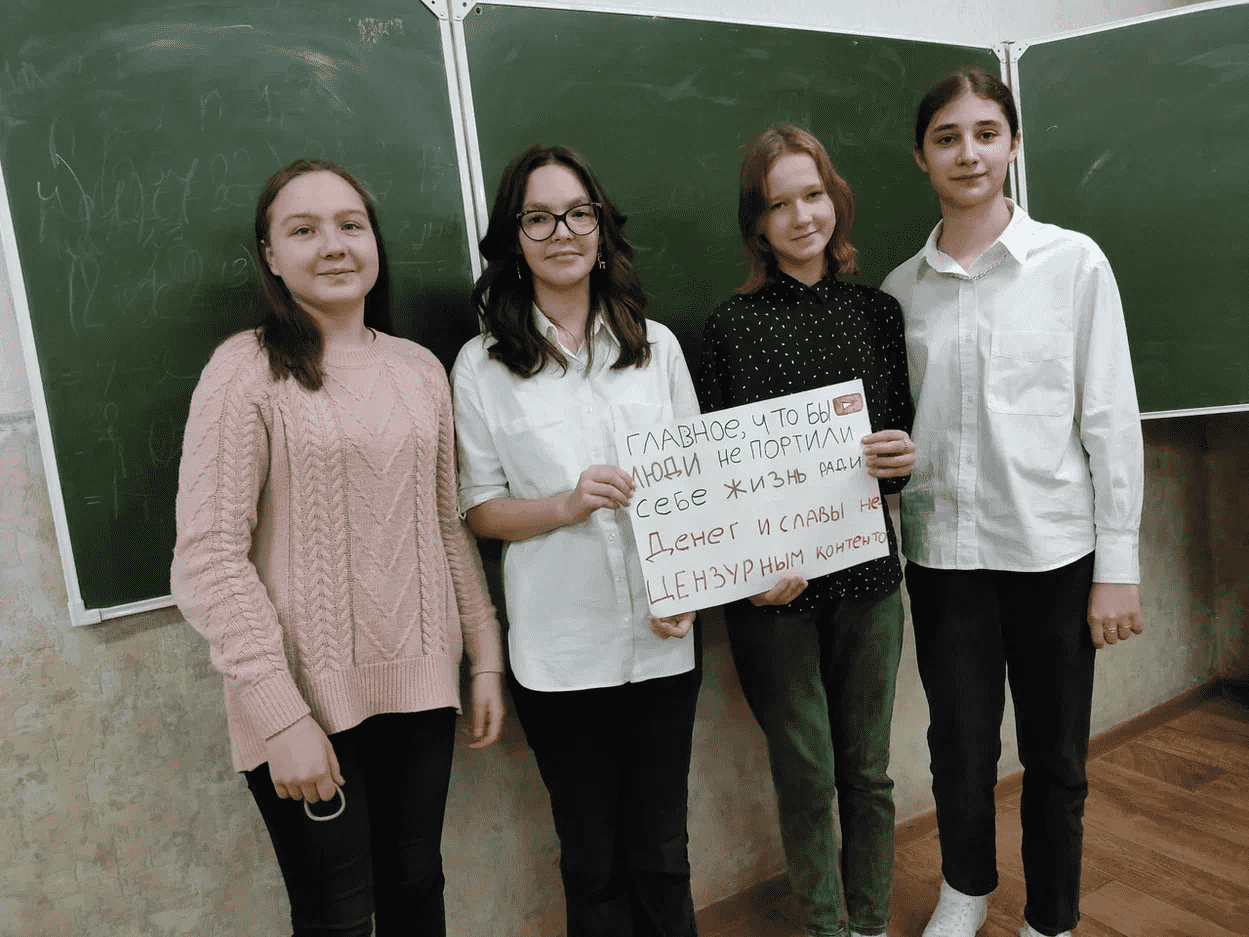 ГЛАВНОЕ, ЧТО БЫ
ЛЮДИ НЕ ПОРТИЛИ
СЕБЕ ЖИЗНЬ РАДИ
ДЕНЕГ И СЛАВЫ НЕ
ЦЕНЗУРНЫМ КОНТЕНТО